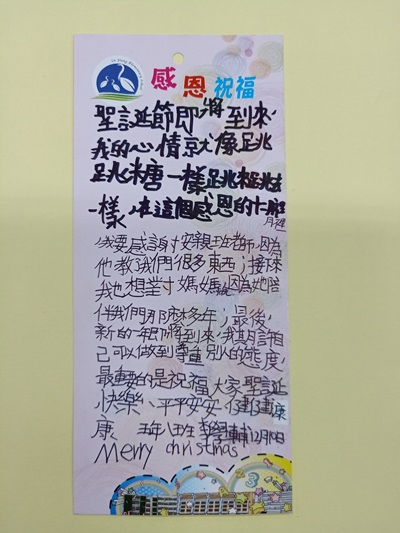 感恩祝福
聖誕節即將到來,
我的心情就像跳
跳糖一樣跳起來
一樣,在這個感恩的十二月裡
我要感謝安親班老師,因為
他教了我們很多東西;接下來
我也想對媽媽說,因為她陪
伴我們那麼多年;最後,
新的一年即將到來,我期許自
己可以做到尊重別人的態度,
最重要的是祝福大家聖誕
快樂、平平安安、健健康
康 五年八班 李學輔12月10日
Merry christmas
3